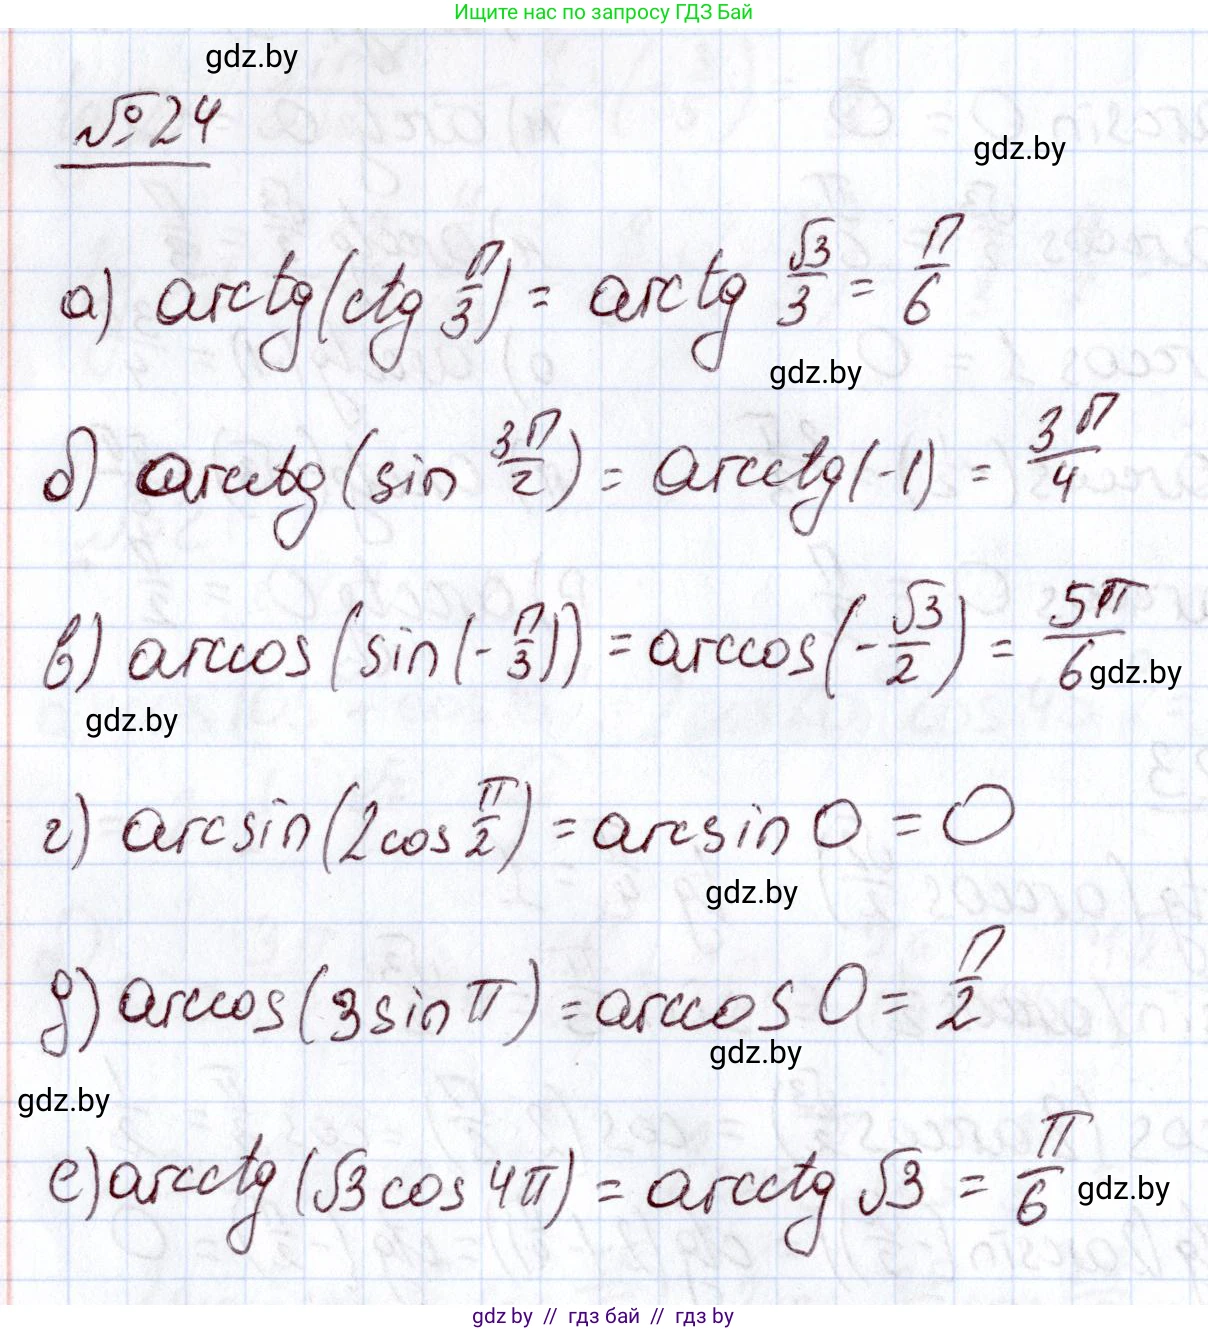 Ищите нас по запросу ГДЗ Бай
gdz.by
№24
gdz.by
а) arctg(ctg π/3) = arctg √3/3 = π/6
gdz.by
б) arcctg(sin 3π/2) = arcctg(-1) = 3π/4
в) arccos(sin(-π/3)) = arccos(-√3/2) = 5π/6
gdz.by
gdz.by
г) arcsin(2cos π/2) = arcsin 0 = 0
gdz.by
д) arccos(3sin π) = arccos 0 = π/2
gdz.by
gdz.by
е) arcctg(√3 cos 4π) = arcctg √3 = π/6
gdz.by
gdz.by // гдз бай // гдз by